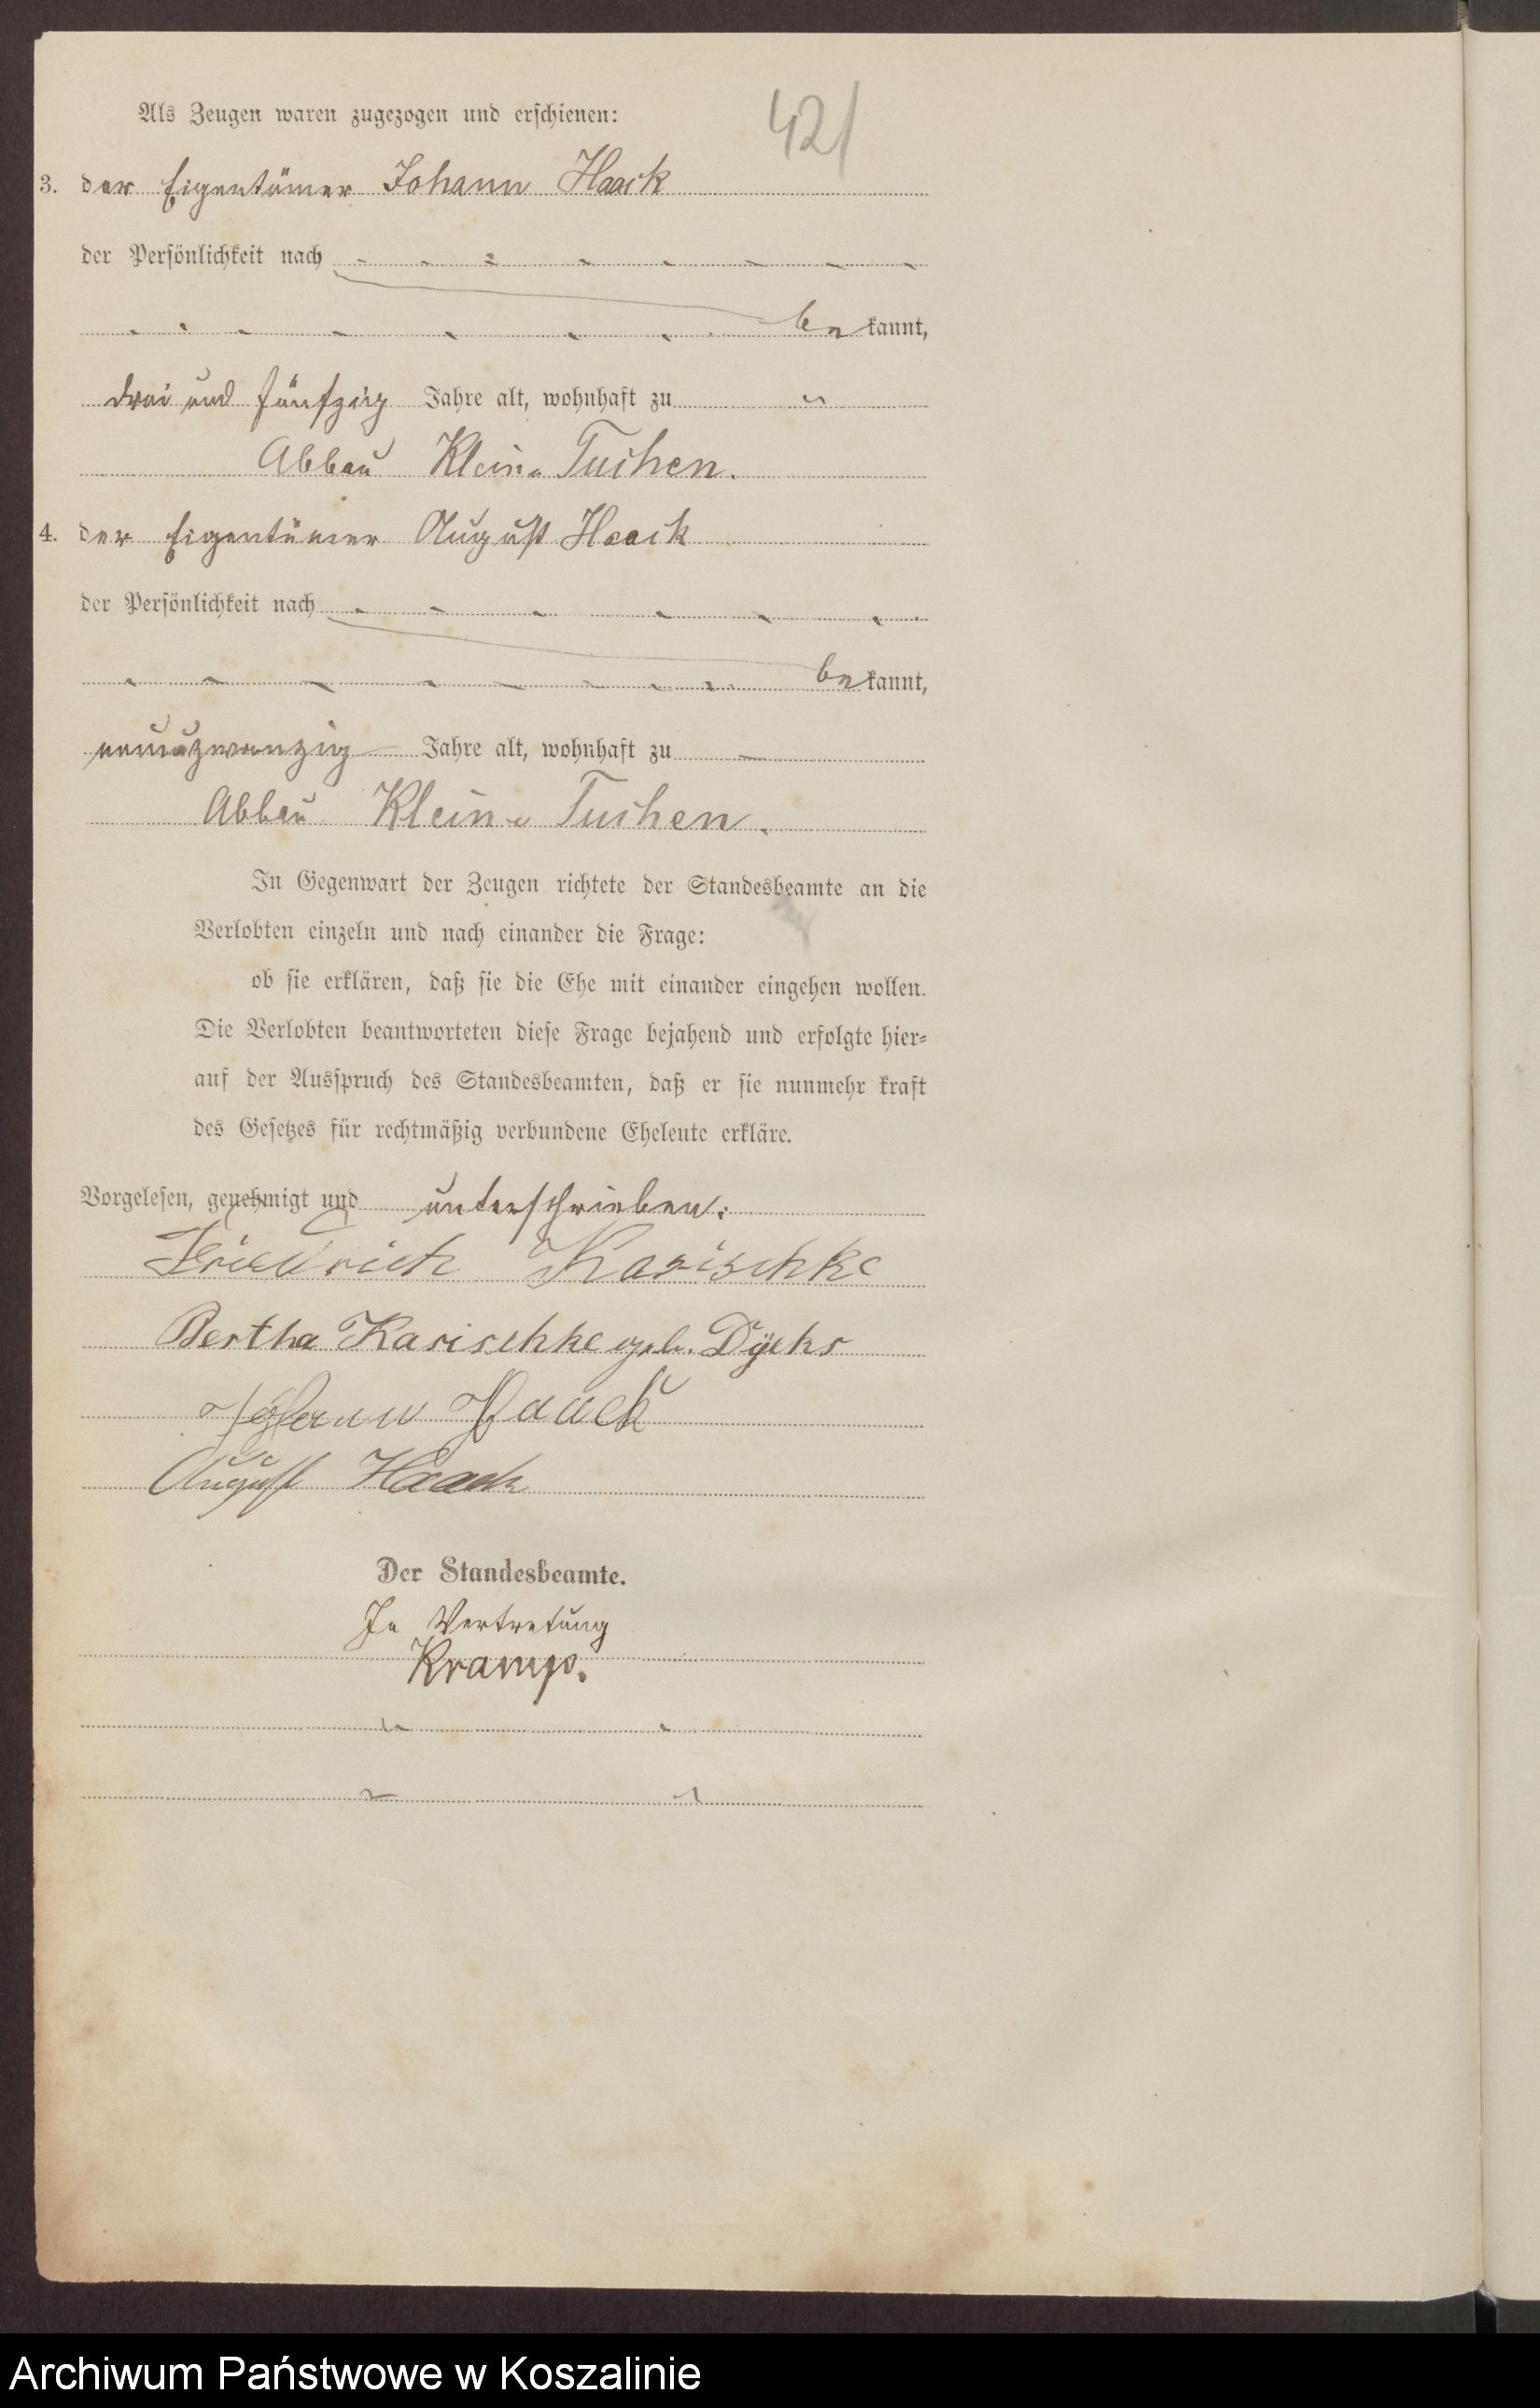 Als Zeugen waren zugezogen und erschienen:
421
3. der Eigentümer Johann Haack
der Persönlichkeit nach
bekannt,
drei und fünfzig Jahre alt, wohnhaft zu
Abbau Klein Tuchen.
4. der Eigentümer August Haack
der Persönlichkeit nach
bekannt,
neunzwanzig Jahre alt, wohnhaft zu
Abbau Klein Tuchen.
In Gegenwart der Zeugen richtete der Standesbeamte an die
Verlobten einzeln und nach einander die Frage:
ob sie erklären, daß sie die Ehe mit einander eingehen wollen.
Die Verlobten beantworteten diese Frage bejahend und erfolgte hier=
auf der Ausspruch des Standesbeamten, daß er sie nunmehr kraft
des Gesetzes für rechtmäßig verbundene Eheleute erkläre.
Vorgelesen, genehmigt und unterschrieben:
Friedrich Karischke
Bertha Karischke geb.
Johann Haack
August Haack
Der Standesbeamte.
In Vertretung
Kramp.
Archiwum Państwowe w Koszalinie